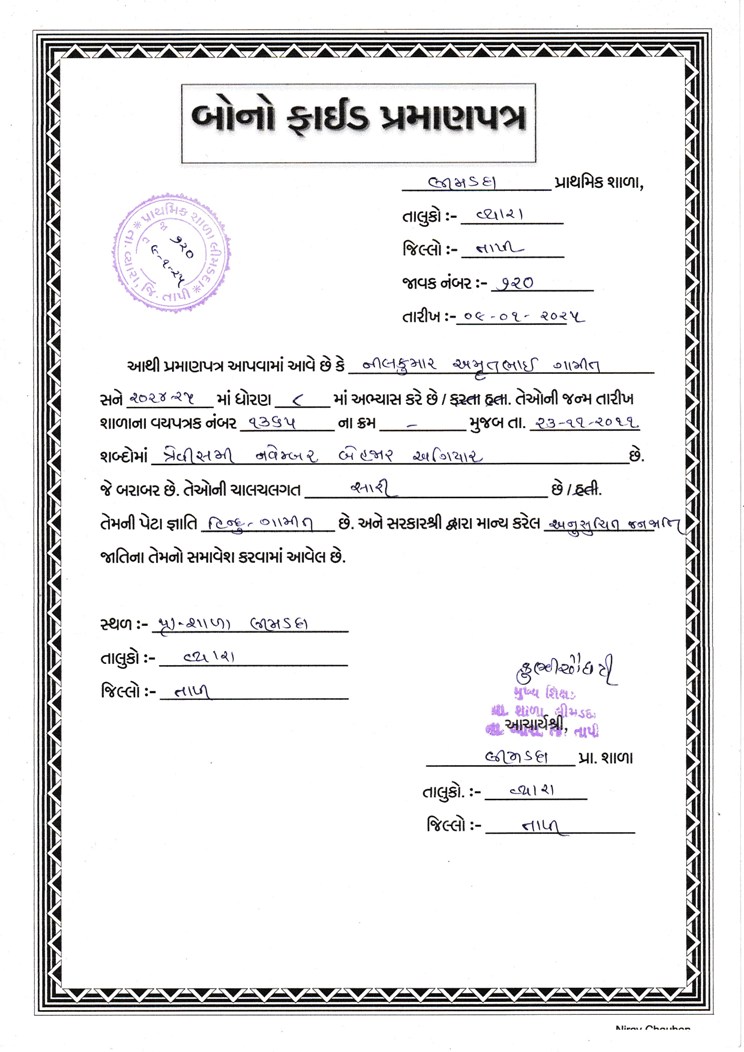 બોનો ફાઈડ પ્રમાણપત્ર
લીમડદા પ્રાથમિક શાળા,
તાલુકો :- વ્યારા
જિલ્લો :- તાપી
જાવક નંબર :- ૧૨૦
તારીખ :- ૦૯-૦૧- ૨૦૨૫
પ્રાથમિક શાળા લીમડદા
તા. વ્યારા, જિ. તાપી
૧૨૦
૯-૧-૨૫
આથી પ્રમાણપત્ર આપવામાં આવે છે કે નીલકુમાર અમૃતભાઈ ગામીત
સને ૨૦૨૪-૨૫ માં ધોરણ ૮ માં અભ્યાસ કરે છે / કરતા હતા. તેઓની જન્મ તારીખ
શાળાના વયપત્રક નંબર ૧૩૬૫ ના ક્રમ - મુજબ તા. ૨૩-૧૧-૨૦૧૧
શબ્દોમાં ત્રેવીસમી નવેમ્બર બેહજાર અગિયાર છે.
જે બરાબર છે. તેઓની ચાલચલગત સારી છે / હતી.
તેમની પેટા જ્ઞાતિ હિન્દુ-ગામીત છે. અને સરકારશ્રી દ્વારા માન્ય કરેલ અનુસુચિત જનજાતિ
જાતિના તેમનો સમાવેશ કરવામાં આવેલ છે.
સ્થળ :- પ્રા-શાળા લીમડદા
તાલુકો :- વ્યારા
જિલ્લો :- તાપી
મુખ્ય શિક્ષક
પ્રા. શાળા, લીમડદા
તા. વ્યારા, જિ. તાપી
આચાર્યશ્રી,
લીમડદા પ્રા. શાળા
તાલુકો. :- વ્યારા
જિલ્લો :- તાપી